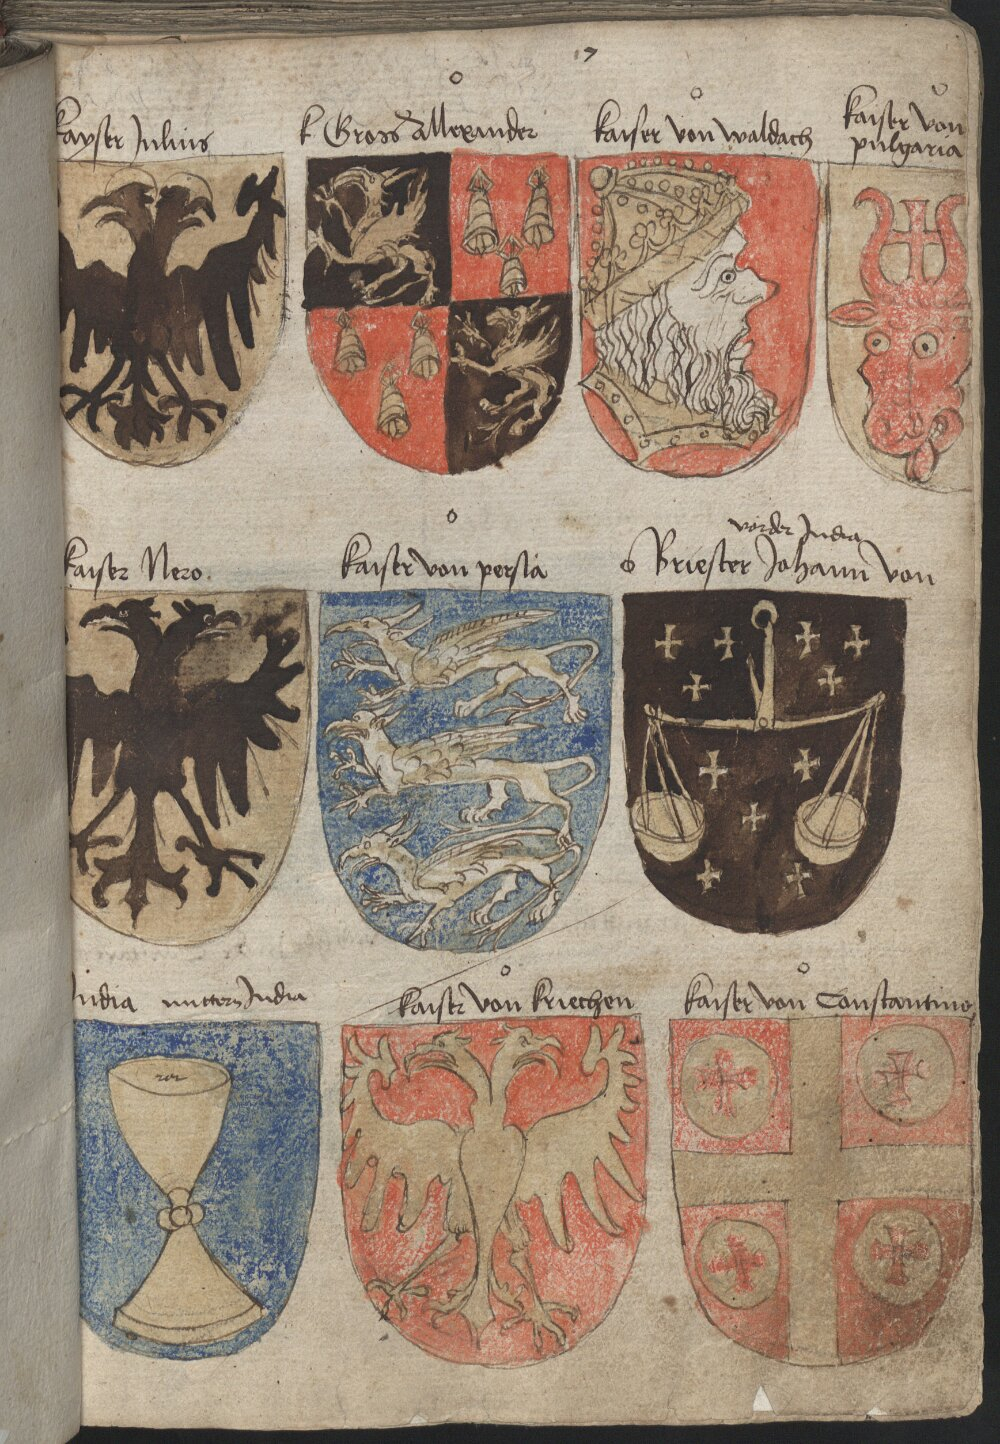 17
kayser Julius
k Gross Allexander
kaiser von waldach
kaiser von
pulgaria
kaiser Nero.
kaiser von persia
vorder India
Briester Johann von
India mittern India
kaiser von kriechen
kaiser von Constantino